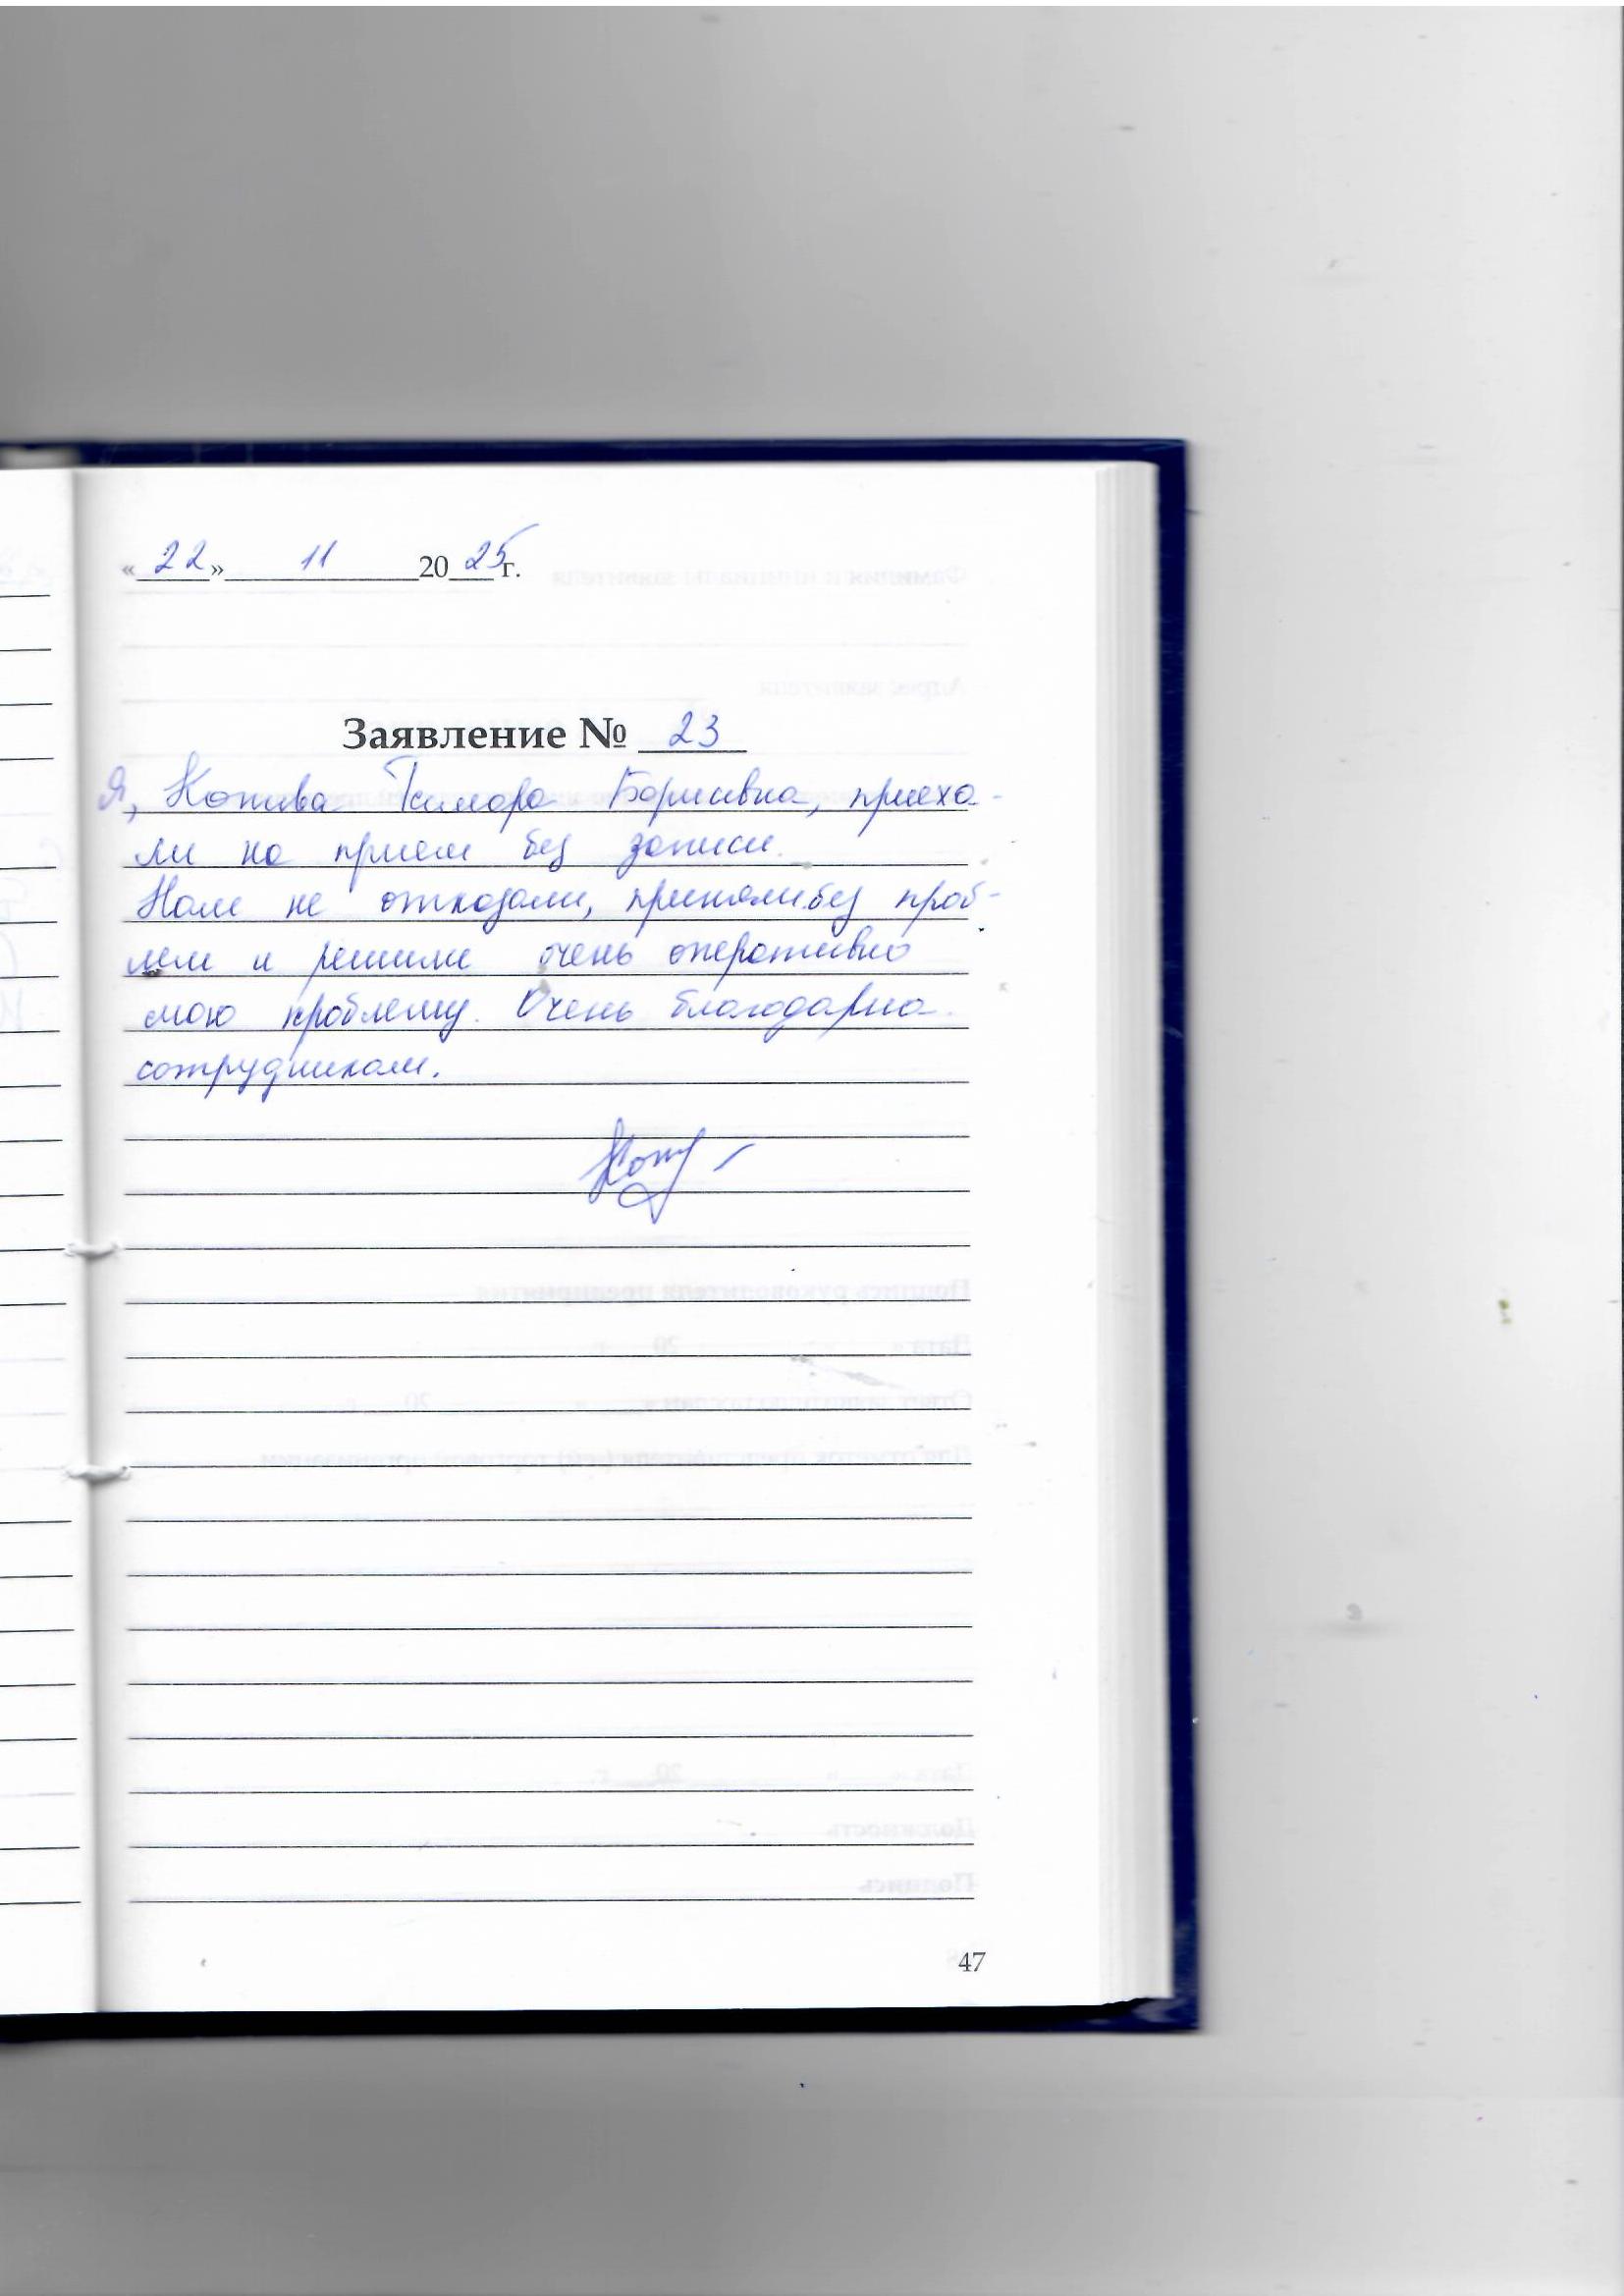 «22» 11 2025 г.
Заявление № 23
Я, Котива Тамара Борисовна, приеха-
ли на прием без записи.
Нам не отказали, приняли без проб-
лем и решили очень оперативно
мою проблему. Очень благодарна
сотрудникам.
47